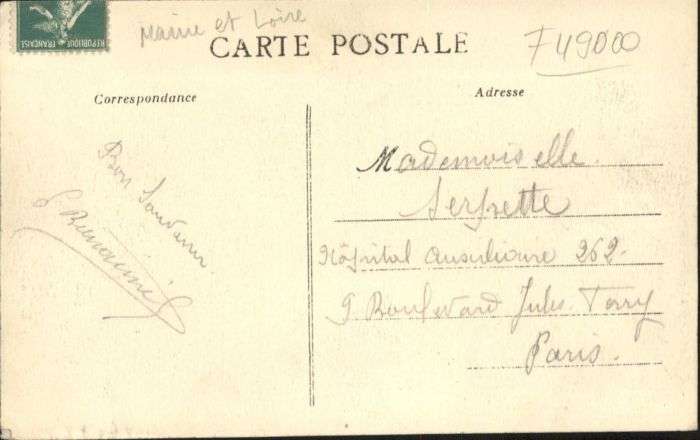 REPUBLIQUE FRANÇAISE
Maine et Loire
CARTE POSTALE
F49000
Correspondance
Adresse
Bon Souvenir
Mademoiselle
Serprette
Hôpital Auxiliaire 262
9 Boulevard Jules Ferry
Paris.